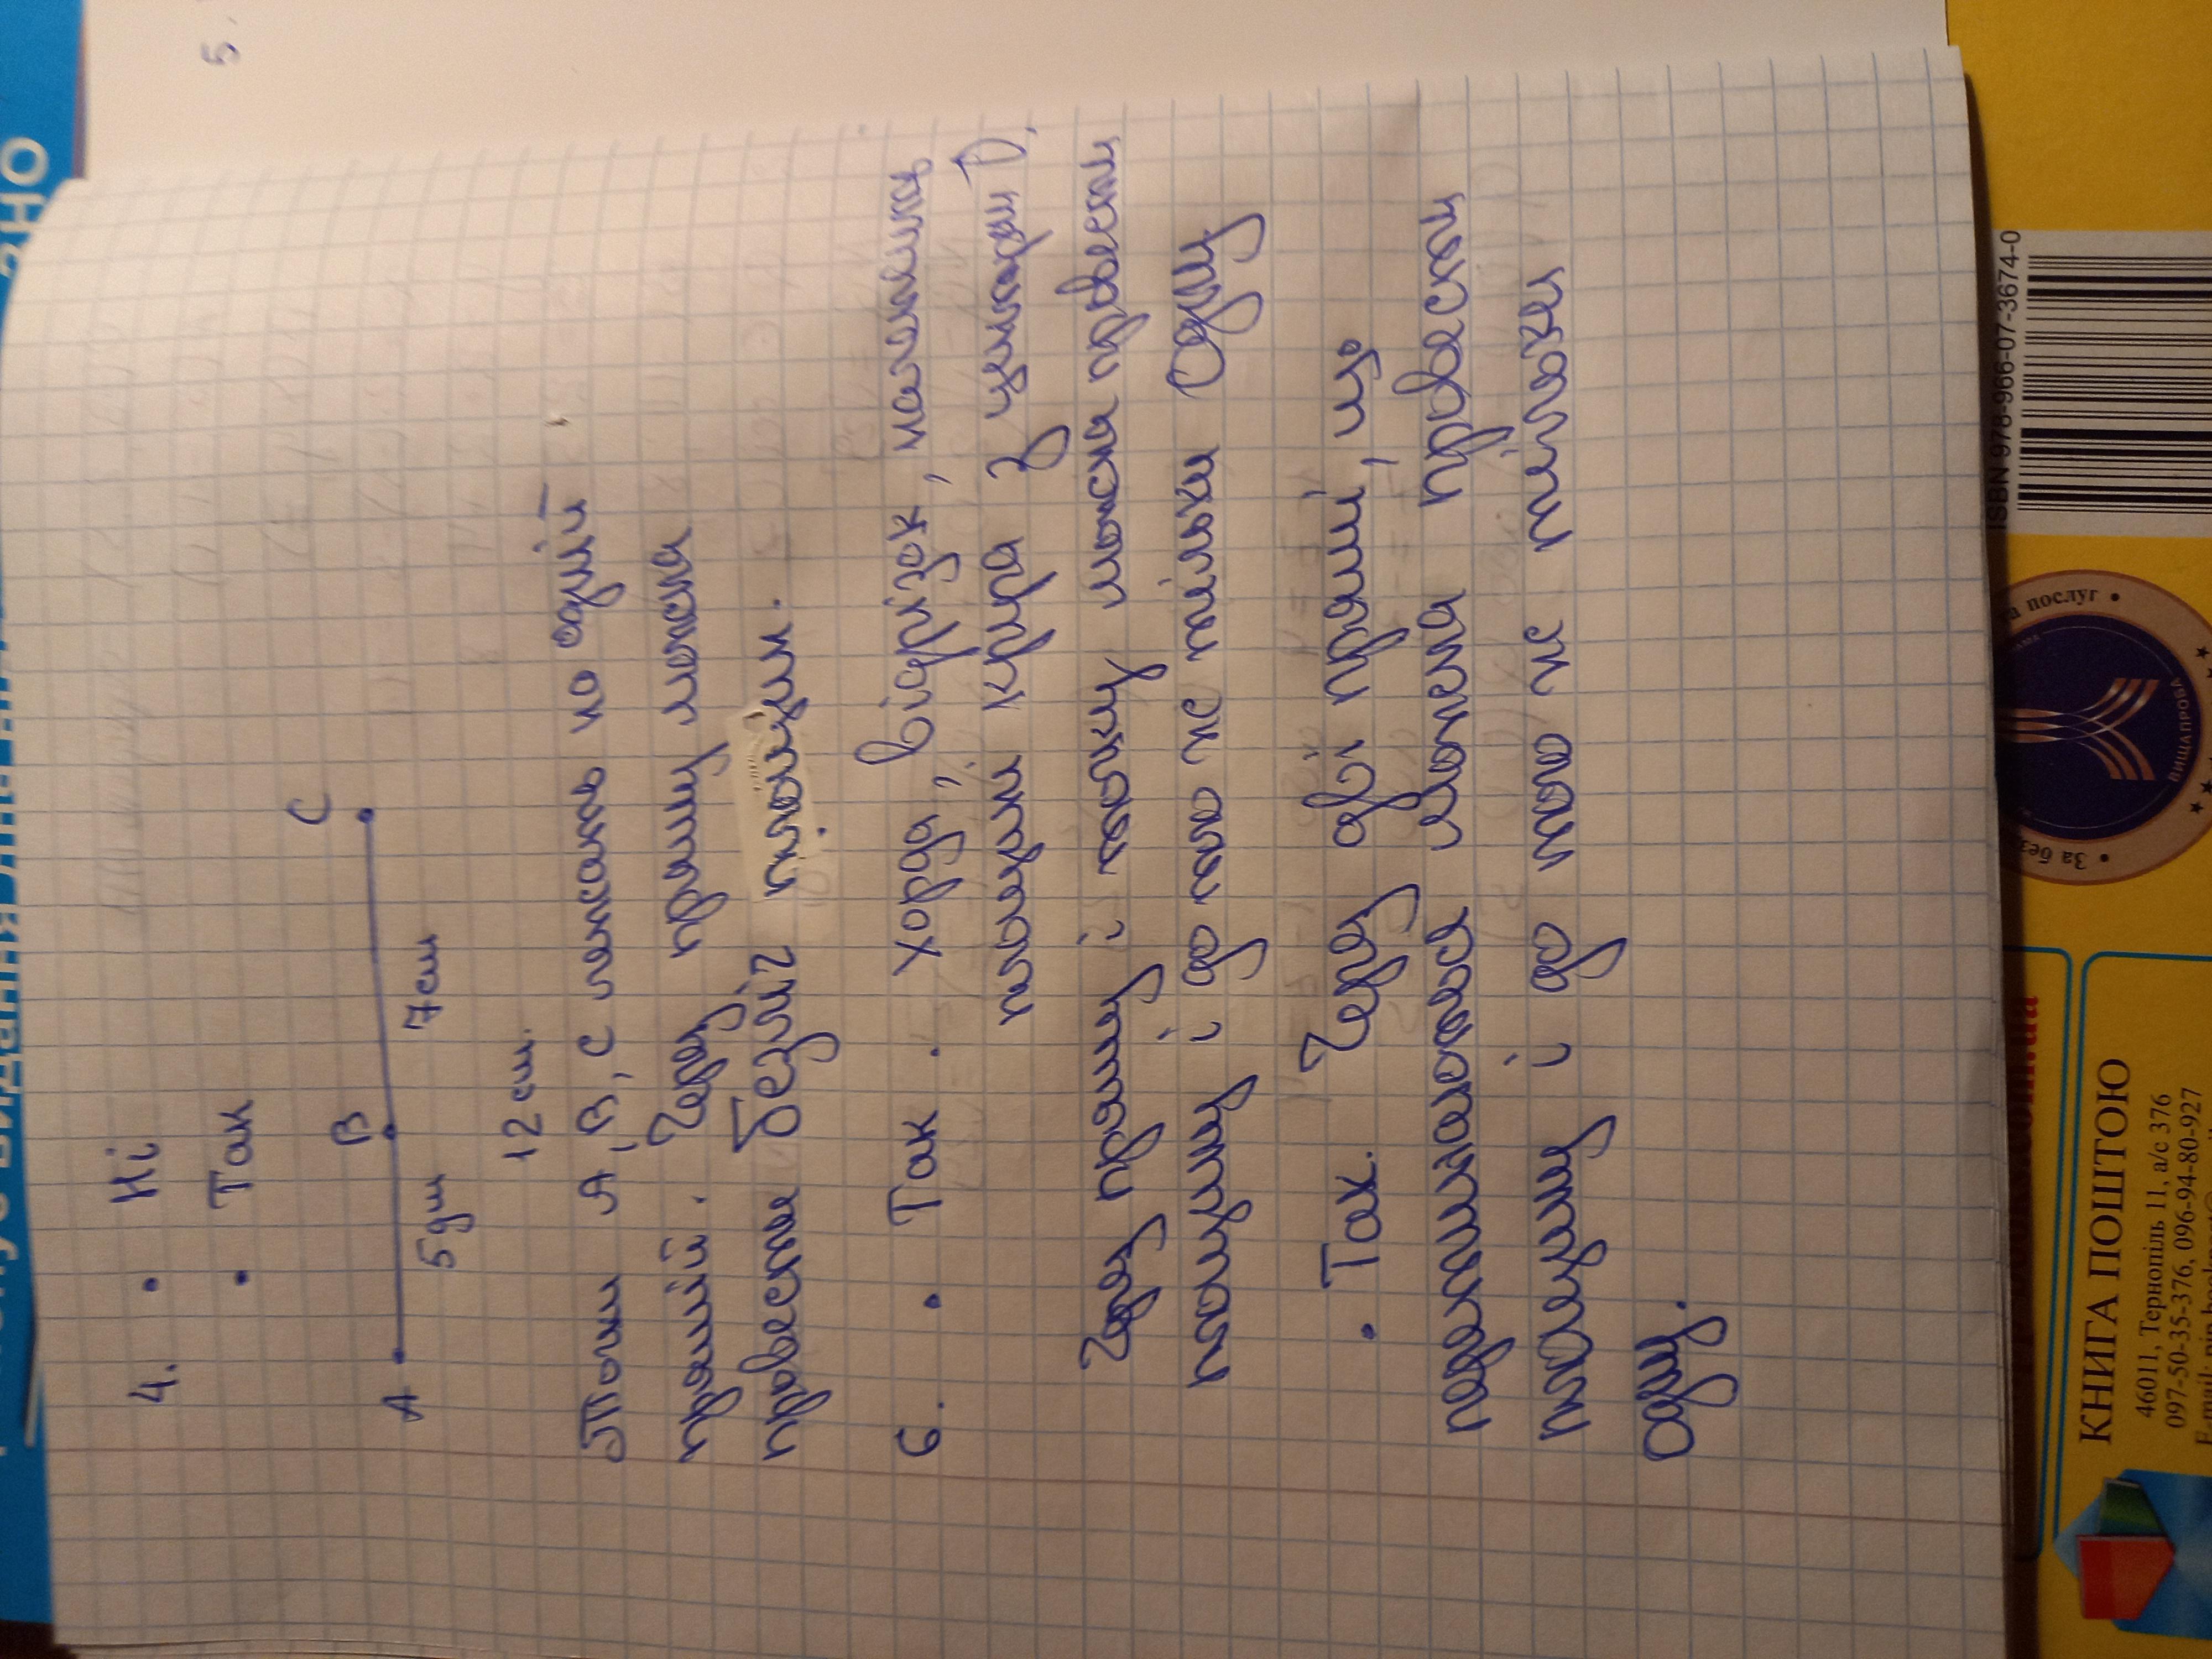 5.
4. • Ні
• Так
A B C
5дм 7см
12 см.
Точки A, B, C лежать на одній
прямій. Через пряму можна
провести безліч площин.
6. • Так. хорда, відрізок, належить
площині круга з центром О,
Через пряму і точку можна провести
площину і до того же тільки Одну
• Так. Через дві прямі, що
перетинаються можна провести
площину і до того же тільки
одну.
ЗНО
ISBN 978-966-07-3674-0
а послуг •
• За без
ВИЩАПРОБА
КНИГА ПОШТОЮ
46011, Тернопіль 11, а/с 376
097-50-35-376, 096-94-80-927